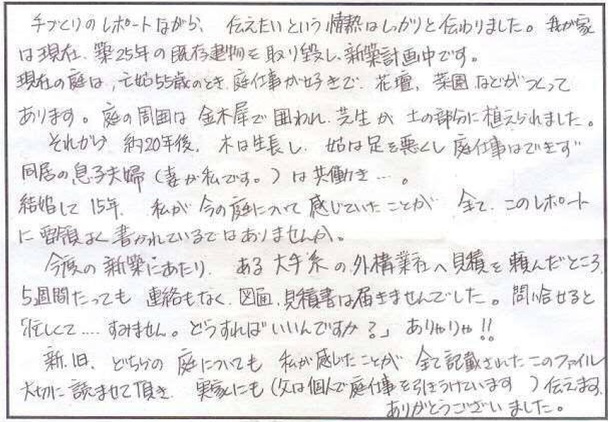 手づくりのレポートながら、伝えたいという情熱はしっかりと伝わりました。我が家
は現在、築25年の既存建物を取り毀し、新築計画中です。
現在の庭は、亡姑55歳のとき、庭仕事が好きで、花壇、菜園などがつくって
あります。庭の周囲は金木犀で囲われ、芝生が土の部分に植えられました。
それから約20年後、木は生長し、姑は足を悪くし庭仕事はできず
同居の息子夫婦(妻が私です。)は共働き…。
結婚して15年、私が今の庭について感じていたことが全て、このレポート
に要領よく書かれているではありませんか。
今度の新築にあたり、ある大手系の外構業社へ見積を頼んだところ
5週間たっても連絡もなく、図面、見積書は届きませんでした。問い合せると
忙しくて....すみません。どうすればいいんですか?」ありゃりゃ!!
新、旧、どちらの庭についても私が感じたことが全て記載されたこのファイル
大切に読ませて頂き、実家にも(父は個人で庭仕事を引きうけています)伝えます。
ありがとうございました。